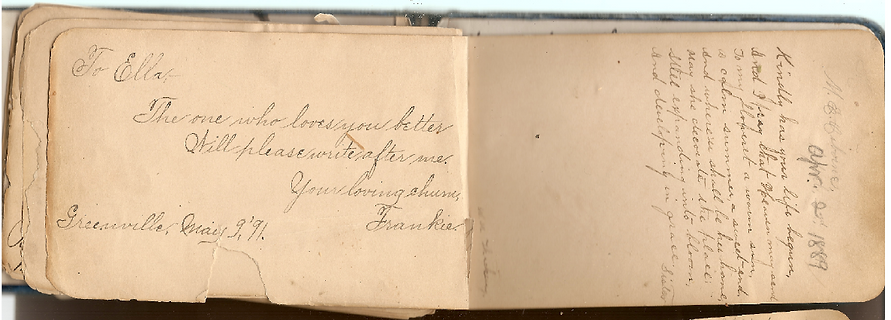 To Ella,
The one who loves you better
Will please write after me.
Your loving chum,
Frankie.
Greenville, May 9, '91.
Apr. 1889
Kindly has your life begun,
And I pray that Heaven may send
To my floweret a warm sun,
a calm summer a sweet end.
And where'er shall be her home,
May she decorate the place;
Still expanding into bloom,
And developing in grace.